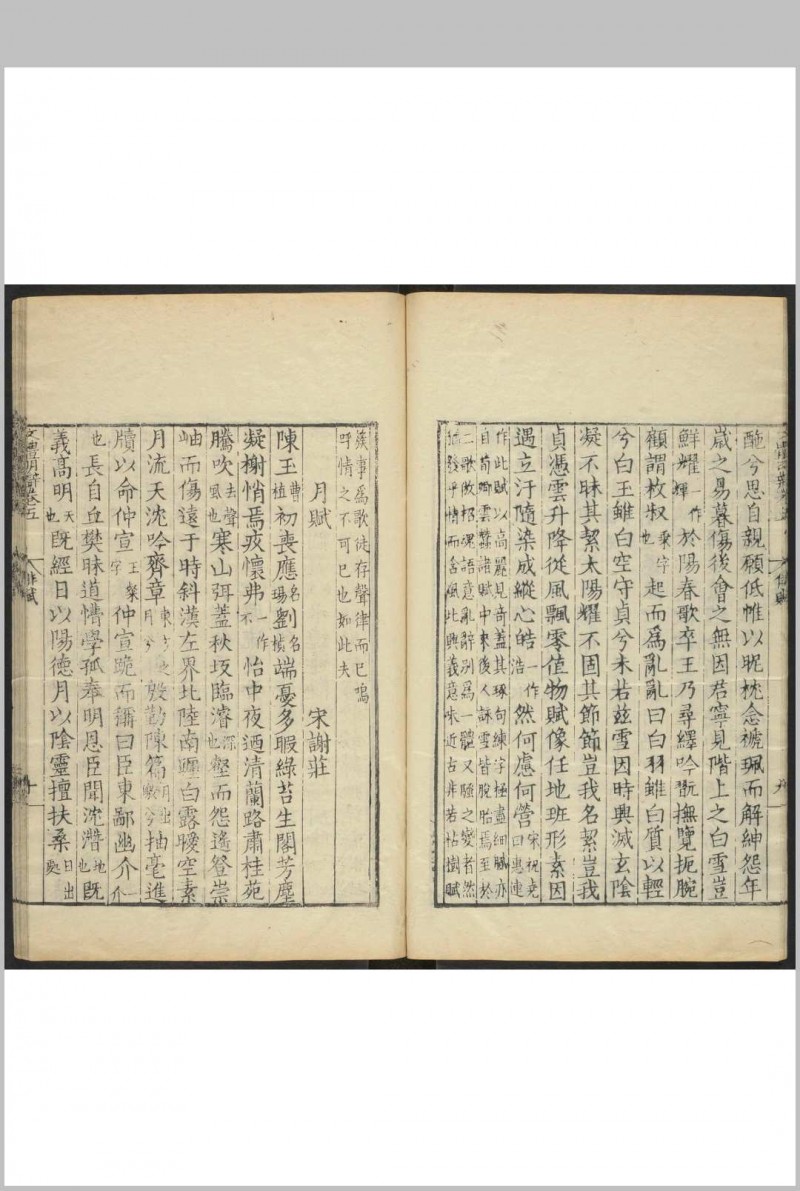 酏兮思自親願低帷以昵枕念褫珮而解紳怨年
歲之易暮傷後會之無因君寧見階上之白雪豈
鮮耀一作輝於陽春歌卒王乃尋繹吟翫撫覽扼腕
顧謂枚叔乘字也起而爲亂亂曰白羽雖白質以輕
兮白玉雖白空守貞兮未若茲雪因時興滅玄陰
凝不昧其絜太陽耀不固其節節豈我名絜豈我
貞憑雲升降從風飄零值物賦像任地班形素因
遇立汙隨染成縱心皓一作浩然何慮何營宋祝堯曰惠連
作此賦以高麗見奇蓋其琢句練字極盡細膩亦
自荀卿雲蠶諸賦中來後人詠雪皆脫胎焉至於
二歌倣招魂語意亂辭別爲一體又騷之變者然
猶發乎情而含風比興義意味近古非若枯樹賦
蔟事爲歌徒存聲律而已嗚
呼情之不可已也如此夫
月賦 宋謝莊
陳王曹植初喪應名瑒劉名楨端憂多暇綠苔生閣芳塵
凝榭悄焉疚懷弗一作不怡中夜迺清蘭路肅桂苑
騰吹去聲風也寒山弭蓋秋坂臨濬深也壑而怨遙登崇
岫而傷遠于時斜漢左界北陸南躔白露曖空素
月流天沈吟齊章殷勤陳篇抽毫進
牘以命仲宣王粲字仲宣跪而稱曰臣東鄙幽介
也長自丘樊昧道懵學孤奉明恩臣聞沈潛地也旣
義高明天也旣經日以陽德月以陰靈擅扶桑日出處